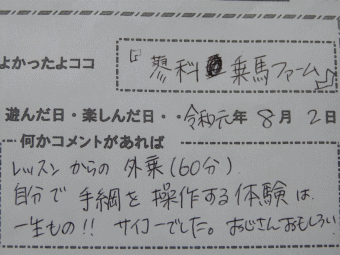 よかったよココ
蓼科 乗馬ファーム
遊んだ日・楽しんだ日・・令和元年 8月 2日
何かコメントがあれば
レッスンからの外乗(60分)
自分で手綱を操作する体験は
一生もの!! サイコーでした。おじさんおもしろい